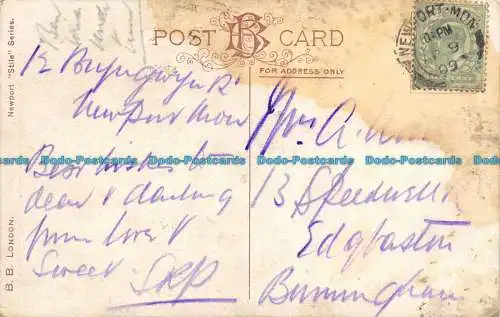 POST CARD
FOR ADDRESS ONLY
NEWPORT·MON
PM
9
09
Newport "Stile" Series.
B. B. LONDON.
12
Newport Mon
Best wishes to
dear & darling
from love &
Sweet SRP
Mrs A.
13 Speedwell R
Edgbaston
Birmingham
Dodo-Postcards Dodo-Postcards Dodo-Postcards Dodo-Postcards Dodo-Postcards